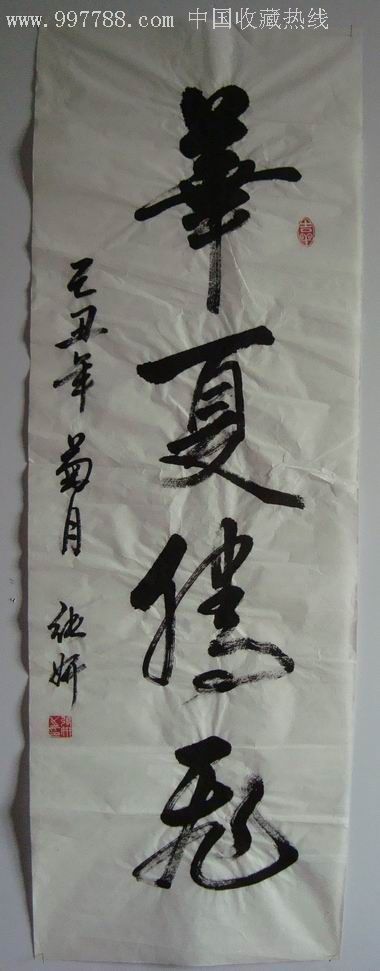 www.997788.com 中国收藏热线
華夏騰飛
己丑年菊月